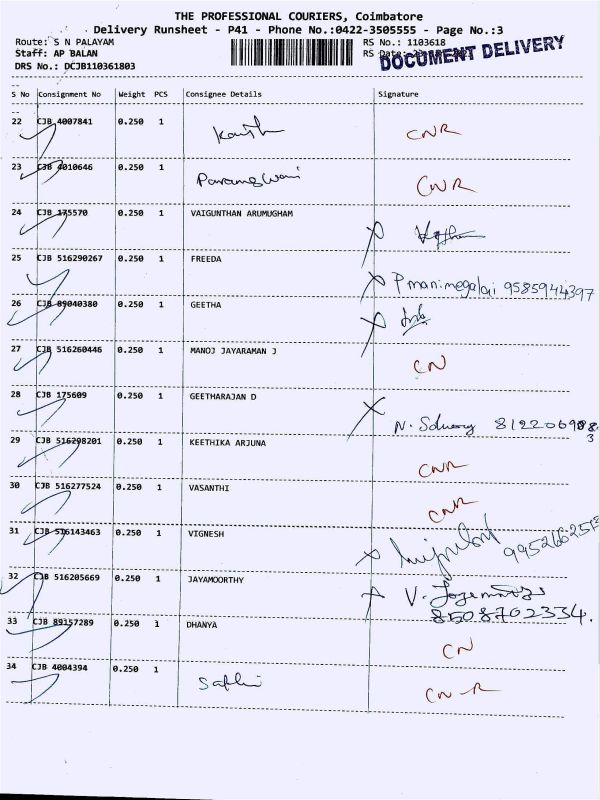 THE PROFESSIONAL COURIERS, Coimbatore
Delivery Runsheet - P41 - Phone No.:0422-3505555 - Page No.:3
Route: S N PALAYAM RS No.: 1103618
Staff: AP BALAN RS Date:
DOCUMENT DELIVERY
DRS No.: DCJB110361803
S No Consignment No Weight PCS Consignee Details Signature
22 CJB 4007841 0.250 1 CNR
23 CJB 4010646 0.250 1 CNR
24 CJB 175570 0.250 1 VAIGUNTHAN ARUMUGHAM
25 CJB 516290267 0.250 1 FREEDA
P manimegalai 9585944397
26 CJB 89040380 0.250 1 GEETHA
27 CJB 516260446 0.250 1 MANOJ JAYARAMAN J CN
28 CJB 175609 0.250 1 GEETHARAJAN D
29 CJB 516298201 0.250 1 KEETHIKA ARJUNA CNR
30 CJB 516277524 0.250 1 VASANTHI CNR
31 CJB 516143463 0.250 1 VIGNESH
32 CJB 516205669 0.250 1 JAYAMOORTHY V.
8508702334.
33 CJB 89157289 0.250 1 DHANYA CN
34 CJB 4004394 0.250 1 CN-R